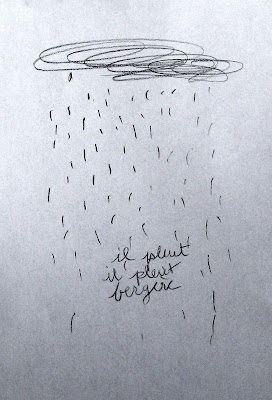 il pleut
il pleut
bergère